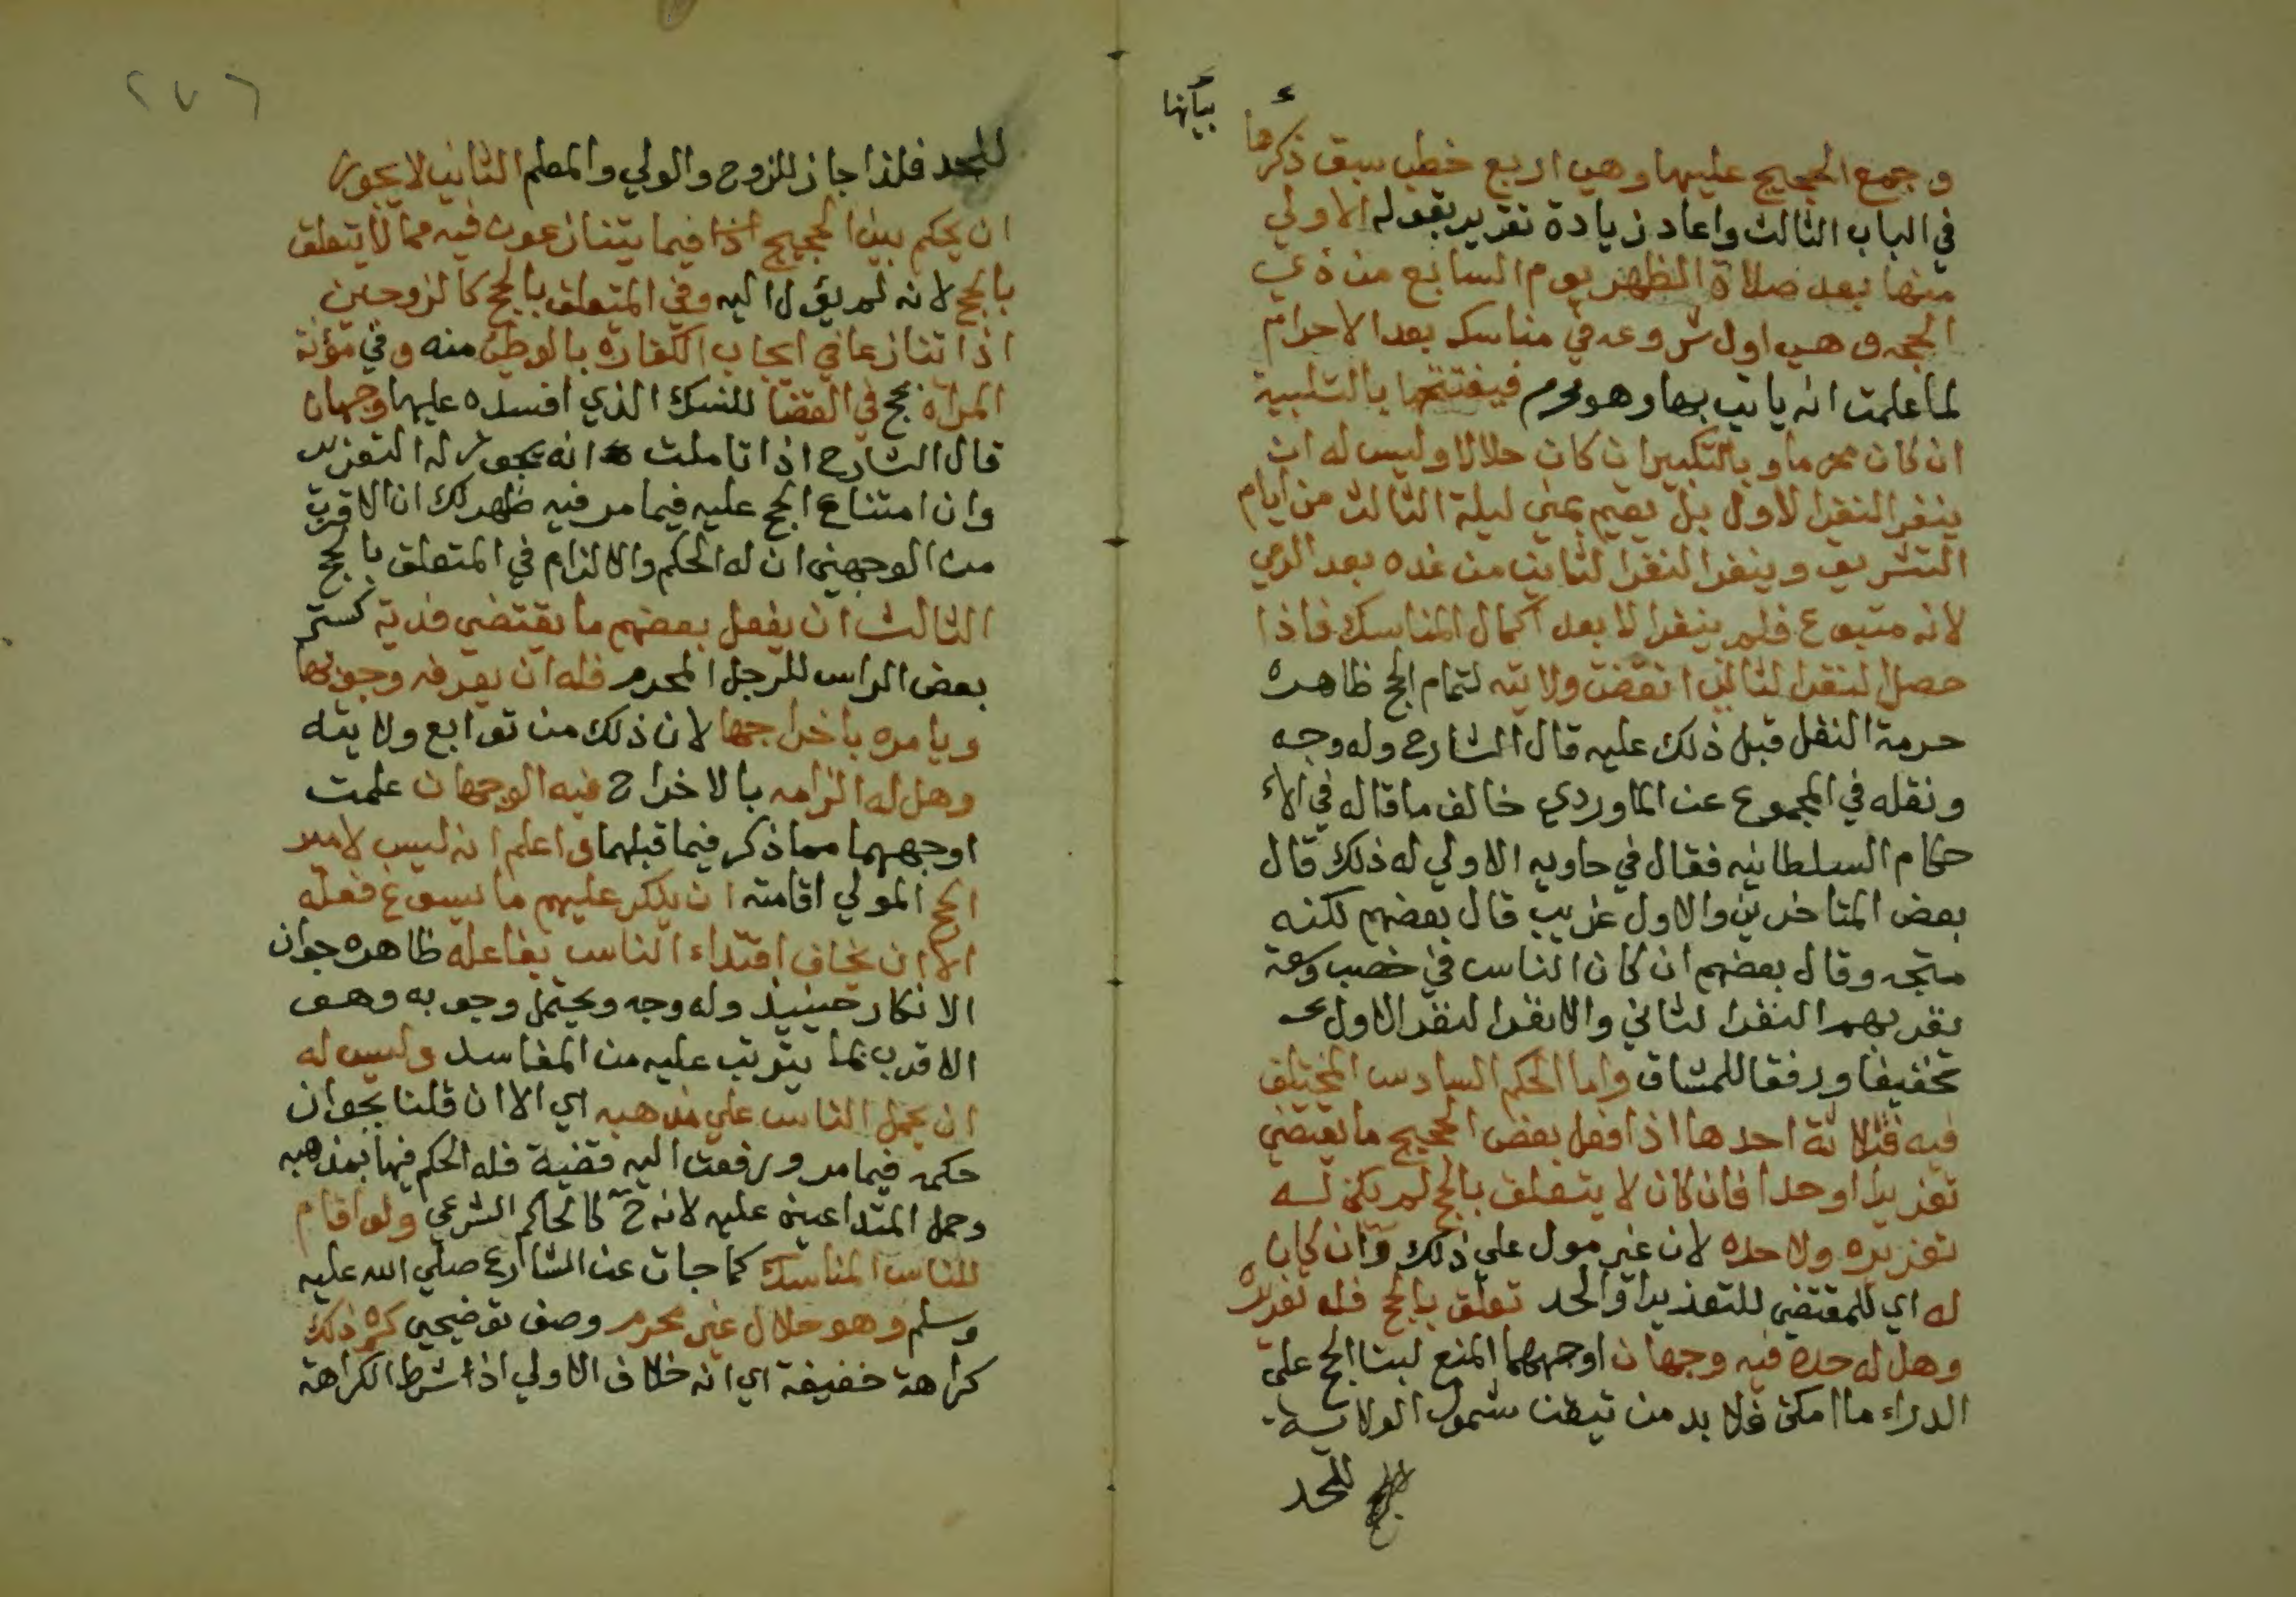 بيانها
وجمع الحجيج عليها وهي اربع خطب سبق ذكرها
في الباب الثالث واعاد زيادة تقرير بقوله الاولي
منها بعد صلاة الظهر يوم السابع من ذي
الحجه وهي اول شروعه في مناسكه بعد الاحرام
لما علمت انه ياتي بها وهو محرم فيفتتحها بالتلبية
ان كان محرما وبالتكبير ان كان حلالا وليس له ان
ينفر النفر الاول بل يقيم بمني ليلة الثالث من ايام
التشريق وينفر النفر الثاني من غده بعد الرمي
لانه متبوع فلم ينفر الا بعد اكمال المناسك فاذا
حصل النفر الثاني انقضت ولايته لتمام الحج ظاهره
حرمة النفل قبل ذلك عليه قال الشارح وله وجه
ونقله في المجموع عن الماوردي خالف ما قاله في الا
حكام السلطانيه فقال في حاويه الاولي له ذلك قال
بعض المتاخرين والاول غريب قال بعضهم لكنه
متجه وقال بعضهم ان كان الناس في خصب وسعة
نفر بهم النفر الثاني والا نفر النفر الاول
تخفيفا ورفقا للمشاق واما الحكم السادس المختلف
فيه فثلاثة احدها اذا فعل بعض الحجيج ما يقتضي
تعزيرا او حدا فان كان لا يتعلق بالحج لم يكن له
تعزيره ولا حده لان غير مول علي ذلك وان كان
له اي للمقتضي للتعزير او الحد تعلق بالحج فله تعزيره
وهل له حده فيه وجهان اوجههما المنع لبنا الحج علي
الدراء ما امكن فلا بد من تيقن شمول الولاية
للحد
٢٧٦
للحد فلذا جاز للزوج والولي والمعلم الثاني لا يجوز
ان يحكم بين الحجيج اذا فيما يتنازعون فيه مما لا يتعلق
بالحج لانه لم يؤل اليه وفي المتعلق بالحج كالزوجين
اذا تنازعا في ايجاب الكفاره بالوطئ منه وفي مؤنة
المراه حج في القضا للنسك الذي افسده عليها وجهان
قال الشارح اذا تاملت انه يجوز له التعزير
وان امتناع الحج عليه فيما مر فيه ظهر لك ان الاقرب
من الوجهين ان له الحكم والالزام في المتعلق بالحج
الثالث ان يفعل بعضهم ما يقتضي فدية كستر
بعض الراس للرجل المحرم فله ان يعرفه وجوبها
ويامره باخراجها لان ذلك من توابع ولايته
وهل له الزامه بالاخراج فيه الوجهان علمت
اوجههما مما ذكر فيما قبلهما واعلم انه ليس لامير
الحج المولي اقامته ان ينكر عليهم ما يسوغ فعله
الا ان يخاف اقتداء الناس بفاعله ظاهره جواز
الانكار حينيذ وله وجه ويحتمل وجوبه وهو
الاقرب لما يترتب عليه من المفاسد وليس له
ان يحمل الناس علي مذهبه اي الا ان قلنا بجواز
حكمه فيما مر ورفعت اليه قضية فله الحكم فيها بمذهبه
وحمل المتداعين عليه لانه ح كالحاكم الشرعي ولو اقام
للناس المناسك كما جات عن الشارع صلي الله عليه
وسلم وهو حلال غير محرم وصف توضيحي كره ذلك
كراهة خفيفة اي انه خلاف الاولي اذ شرط الكراهة